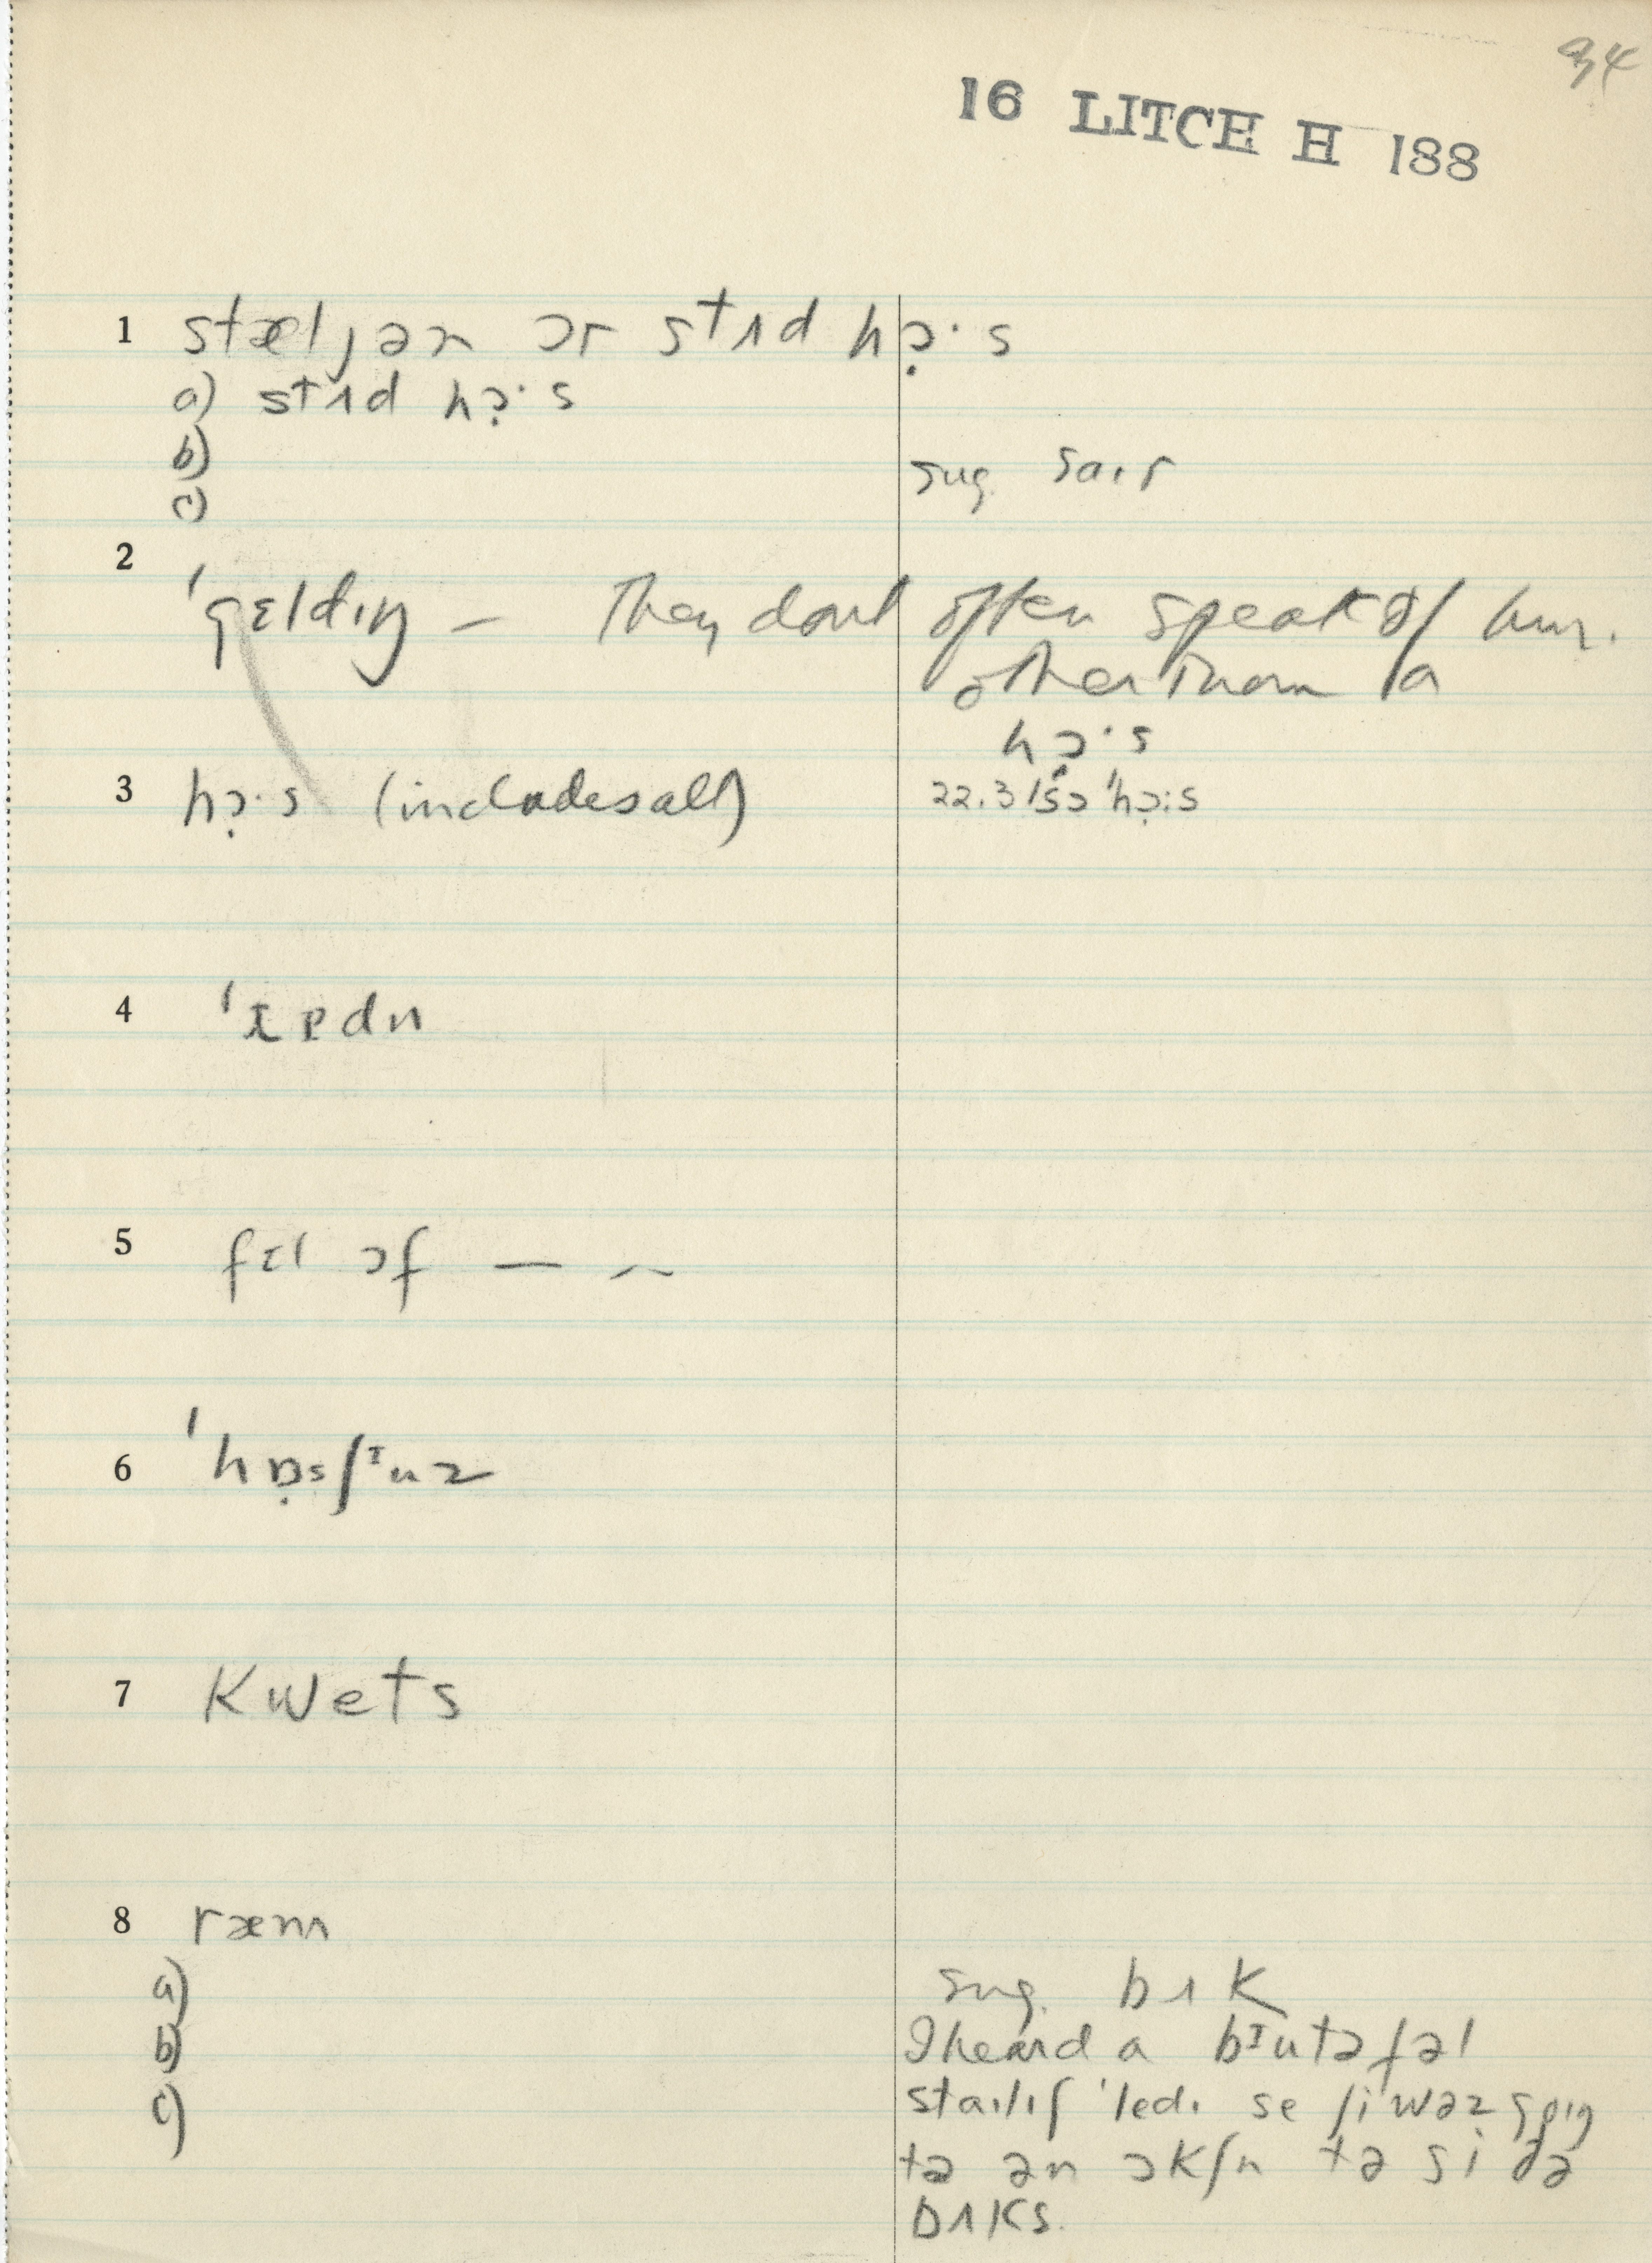 94
16 LITCH H 188
1 stæljən ɔr stʌd hɔ̣·s
a) stʌd hɔ̣·s
b) sug. saɪr
c)
2
'gɛldɪŋ – They dont often speak of him.
other than a
hɔ̣·s
3 hɔ̣·s (includes all) 22.3 'sɔ 'hɔ̣:s
4 dn
5 fɪl ɔf — —
6 'hɒ̣sʃᶦuz
7 Kwets
8 ræm
a) sug. bʌK
b) I heard a bᶦutəfəl
c) staɪlɪʃ 'ledɪ se ʃi wəz goɪŋ
tə ən ɔkʃn tə si ðə
bʌKs.